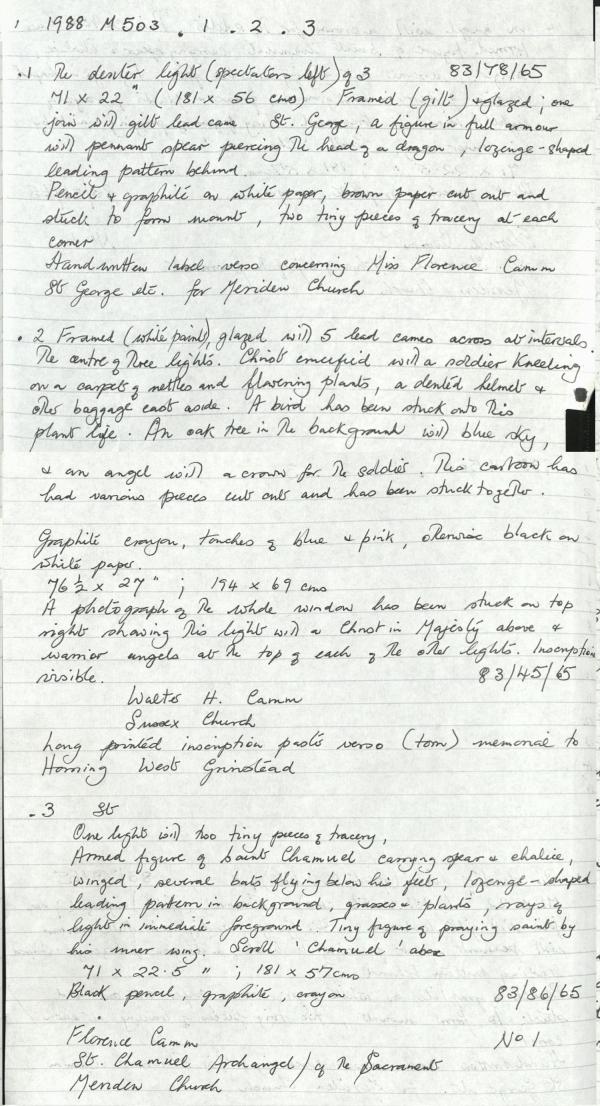 1988 M503 . 1 . 2 . 3
.1 The dexter light (spectators left) of 3 83/78/65
71 x 22" (181 x 56 cms) Framed (gilt) & glazed; one
join with gilt lead came. St. George, a figure in full armour
with pennant spear piercing the head of a dragon, lozenge-shaped
leading pattern behind.
Pencil & graphite on white paper, brown paper cut out and
stuck to form mount, two tiny pieces of tracery at each
corner
Handwritten label verso concerning Miss Florence Camm
St George etc. for Meriden Church
.2 Framed (white paint), glazed with 5 lead cames across at intervals.
The centre of three lights. Christ crucified with a soldier kneeling
on a carpet of nettles and flowering plants, a dented helmet &
other baggage cast aside. A bird has been stuck onto this
plant life. An oak tree in the background with blue sky,
& an angel with a crown for the soldier. This cartoon has
had various pieces cut out and has been stuck together.
Graphite crayon, touches of blue & pink, otherwise black on
white paper.
76 ½ x 27" ; 194 x 69 cms
A photograph of the whole window has been stuck on top
right showing this light with a Christ in Majesty above &
warrior angels at the top of each of the other lights. Inscription
visible. 83/45/65
Walter H. Camm
Sussex Church
Long printed inscription pasted verso (torn) memorial to
Horning West Grinstead
.3 St
One light with two tiny pieces of tracery,
Armed figure of Saint Chamuel carrying spear & chalice,
winged, several bats flying below his feet, lozenge-shaped
leading pattern in background, grasses & plants, rays of
light in immediate foreground. Tiny figure of praying saint by
his inner wing. Scroll 'Chamuel' above
71 x 22.5 " ; 181 x 57 cms
Black pencil, graphite, crayon 83/86/65
Florence Camm No 1
St. Chamuel Archangel / of the Sacrament
Meriden Church